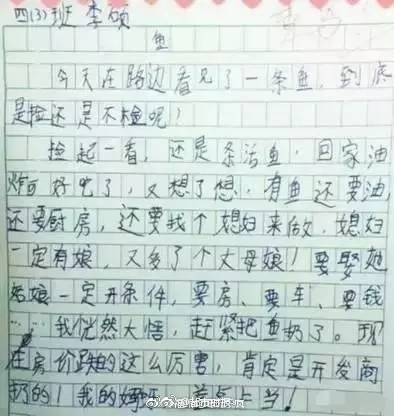 四(3)班 李硕
鱼
今天在路边看见了一条鱼,到底
是捡还是不捡呢!
捡起一看,还是条活鱼,回家油
炸可好吃了,又想了想,有鱼还要油,
还要厨房,还要找个媳妇来做,媳妇
一定有娘,又多了个丈母娘!要娶她
姑娘一定开条件,要房、要车、要钱
……我恍然大悟,赶紧把鱼扔了。现
在房价跌的这么厉害,肯定是开发商
扔的!我的妈呀 差点上当!